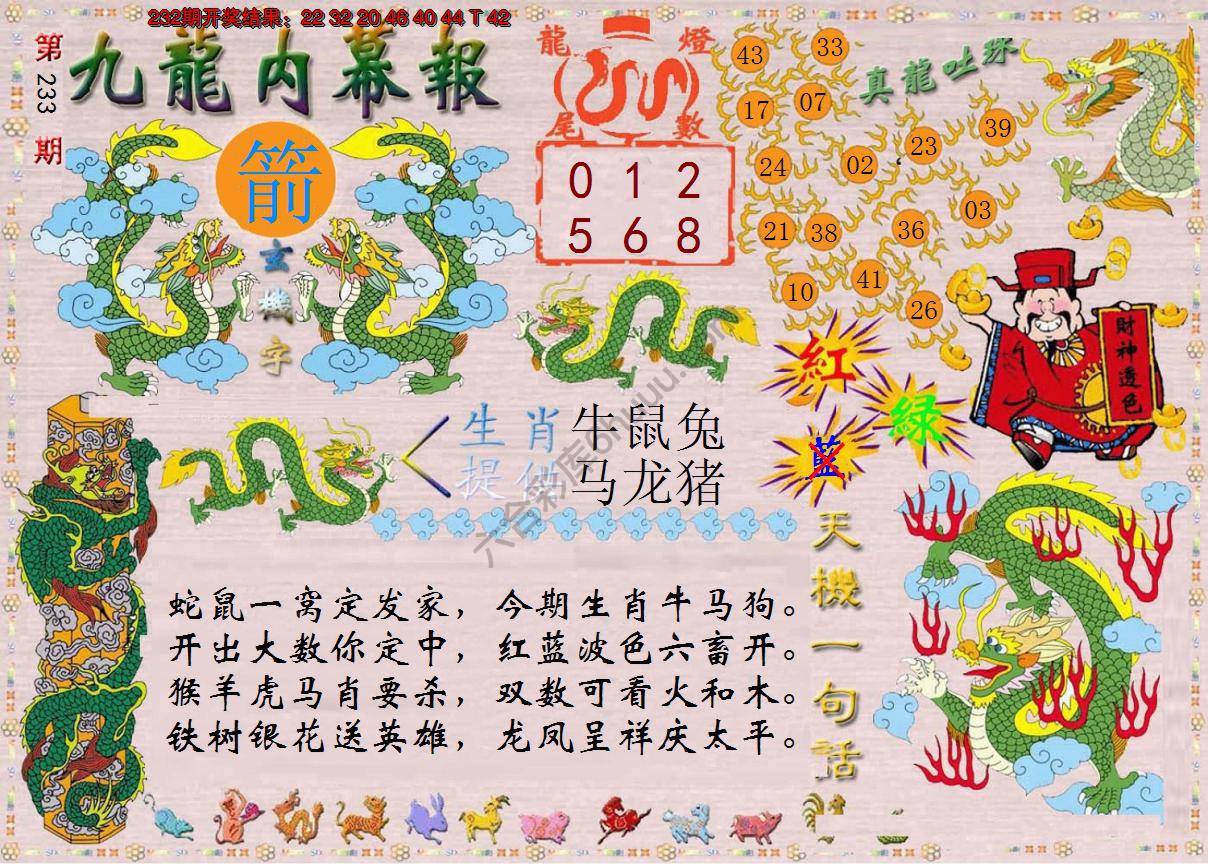 232期开奖结果：22 32 20 46 40 44 T 42
第233期
九龍内幕報
箭
玄機字
龍燈
尾數
0 1 2
5 6 8
真龍吐珠
43 33
17 07
24 02 23 39
21 38 36 03
10 41 26
財神透色
紅
綠
藍
生肖 牛鼠兔
提供 马龙猪
天機一句話
蛇鼠一窝定发家，今期生肖牛马狗。
开出大数你定中，红蓝波色六畜开。
猴羊虎马肖要杀，双数可看火和木。
铁树银花送英雄，龙凤呈祥庆太平。